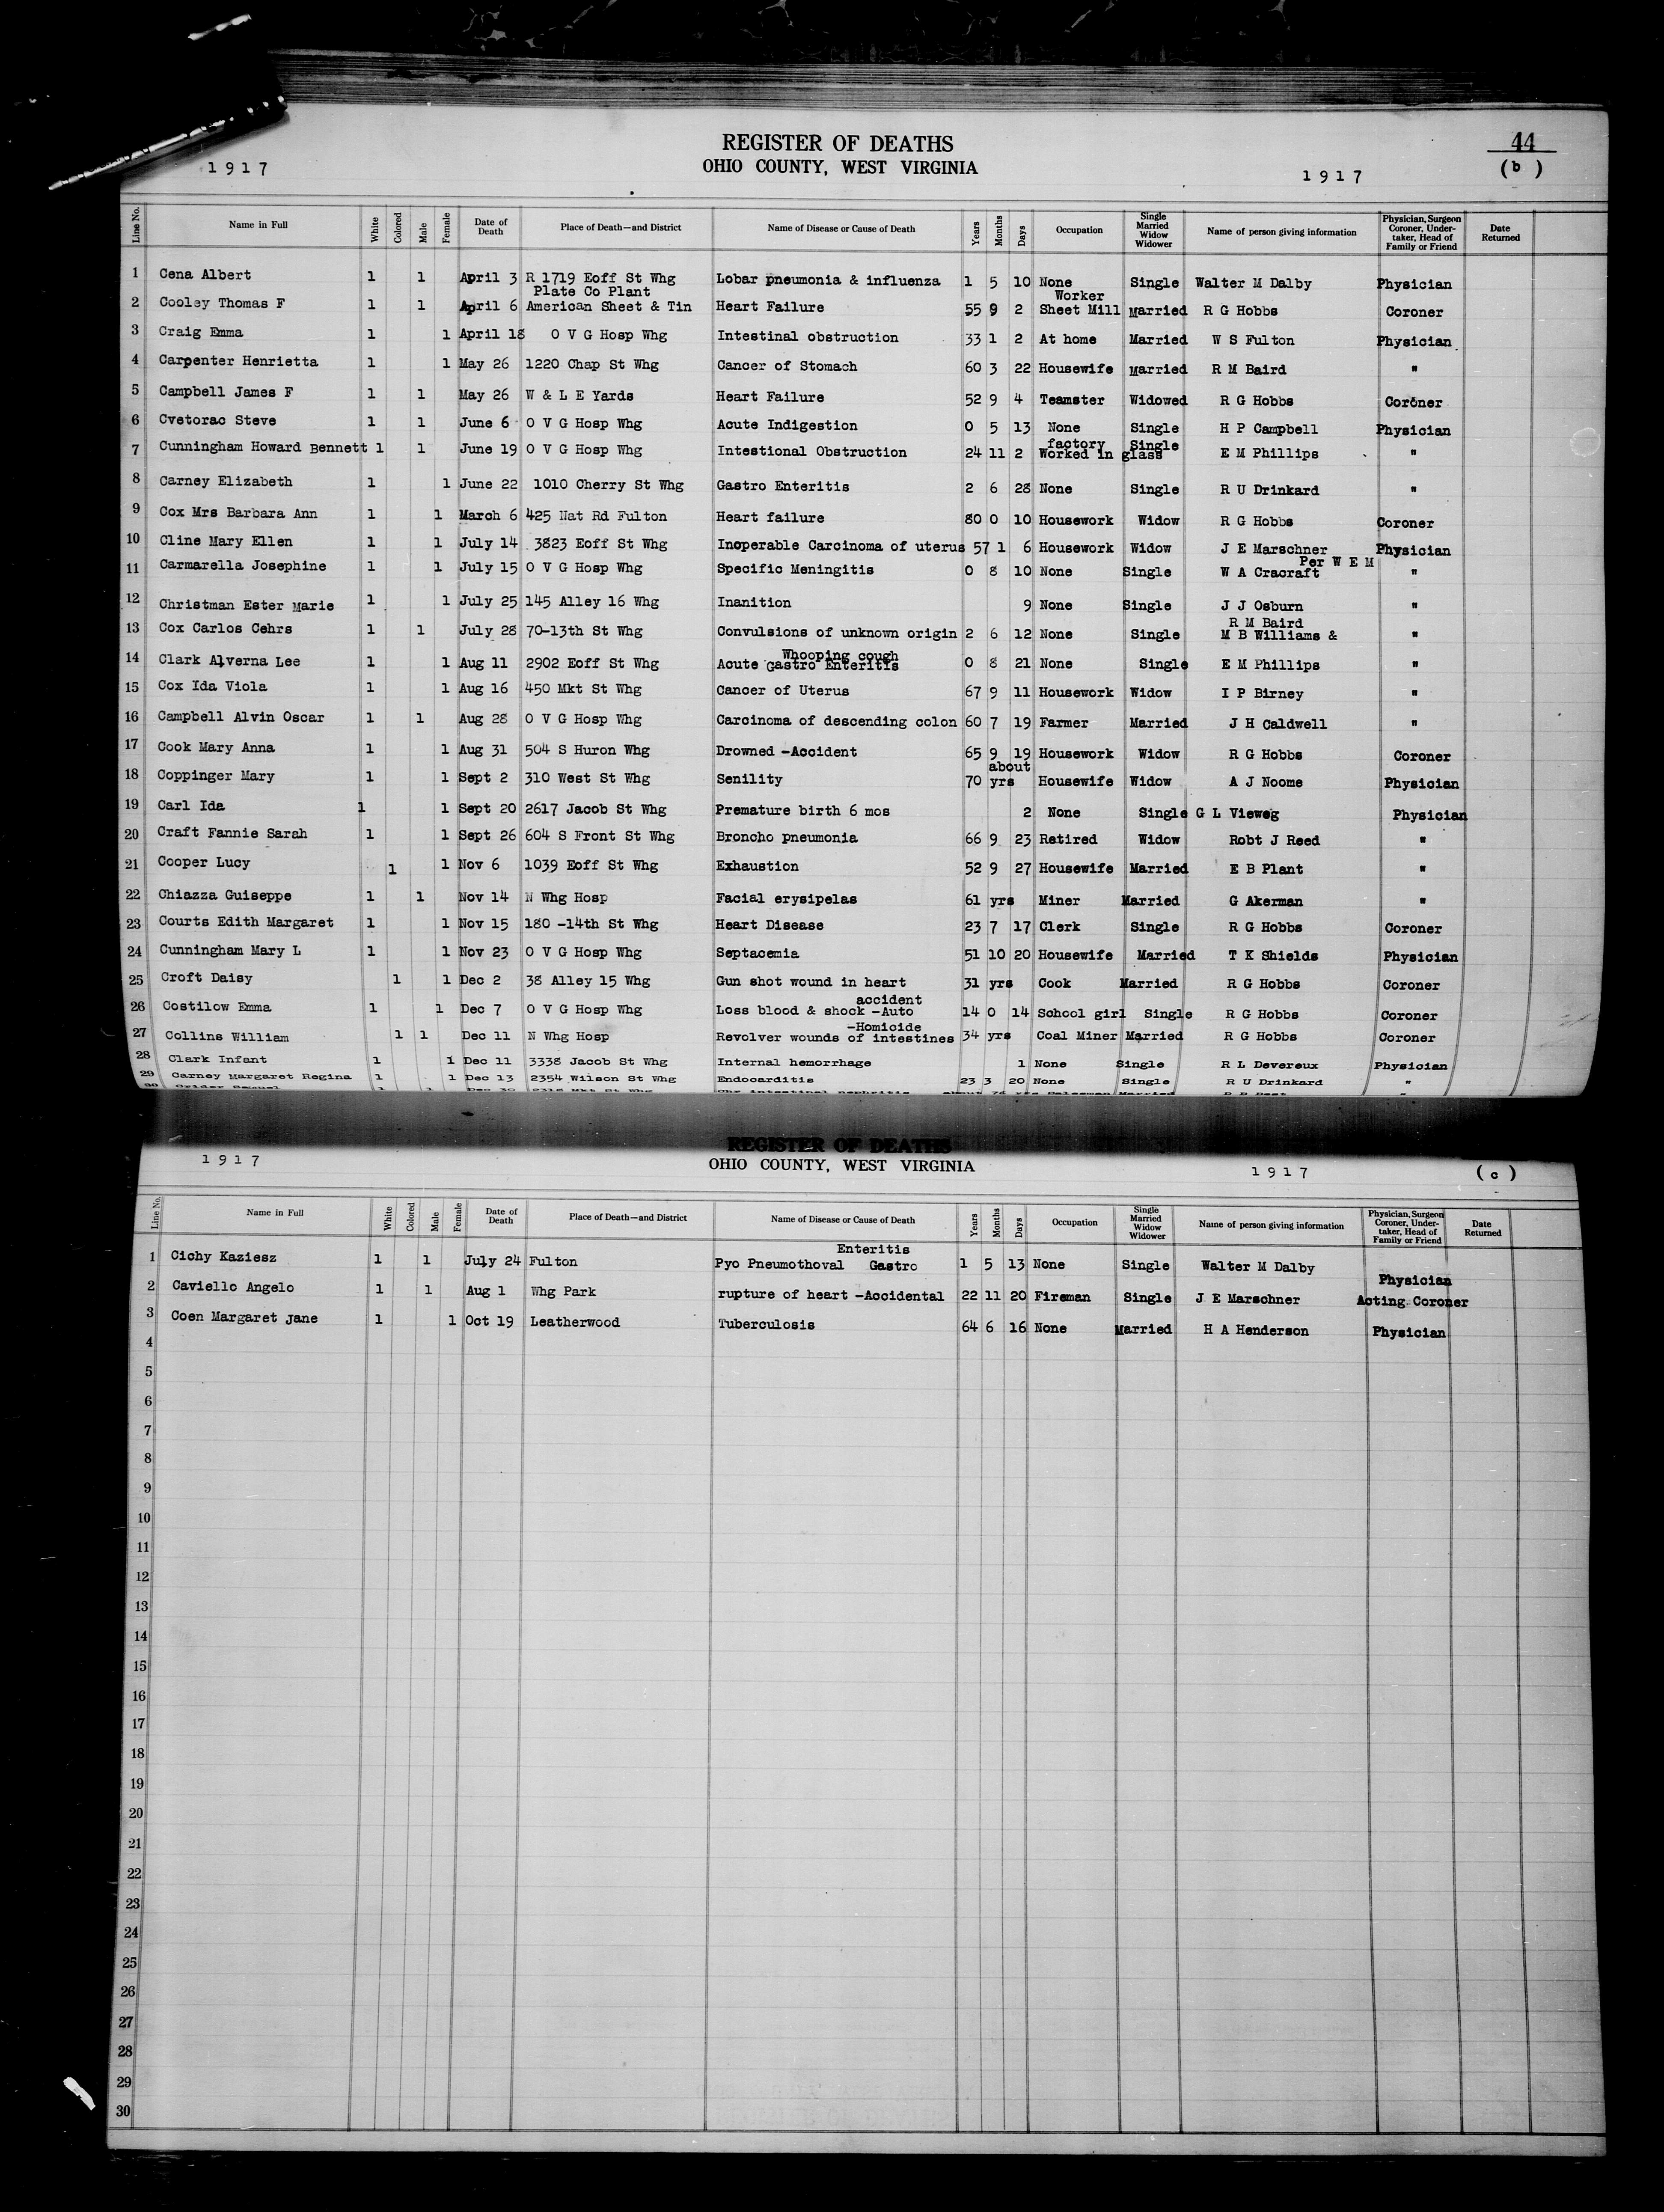 REGISTER OF DEATHS
OHIO COUNTY, WEST VIRGINIA
44
(b )
1917
1917
Line No. Name in Full White Colored Male Female Date of Death Place of Death—and District Name of Disease or Cause of Death Years Months Days Occupation Single Married Widow Widower Name of person giving information Physician, Surgeon Coroner, Undertaker, Head of Family or Friend Date Returned
1 Cena Albert 1 1 April 3 R 1719 Eoff St Whg Lobar pneumonia & influenza 1 5 10 None Single Walter M Dalby Physician
Plate Co Plant Worker
2 Cooley Thomas F 1 1 April 6 American Sheet & Tin Heart Failure 55 9 2 Sheet Mill Married R G Hobbs Coroner
3 Craig Emma 1 1 April 18 O V G Hosp Whg Intestinal obstruction 33 1 2 At home Married W S Fulton Physician
4 Carpenter Henrietta 1 1 May 26 1220 Chap St Whg Cancer of Stomach 60 3 22 Housewife Married R M Baird "
5 Campbell James F 1 1 May 26 W & L E Yards Heart Failure 52 9 4 Teamster Widowed R G Hobbs Coroner
6 Cvetorac Steve 1 1 June 6 O V G Hosp Whg Acute Indigestion 0 5 13 None Single H P Campbell Physician
factory Single
7 Cunningham Howard Bennett 1 1 June 19 O V G Hosp Whg Intestional Obstruction 24 11 2 Worked in glass E M Phillips "
8 Carney Elizabeth 1 1 June 22 1010 Cherry St Whg Gastro Enteritis 2 6 28 None Single R U Drinkard "
9 Cox Mrs Barbara Ann 1 1 March 6 425 Nat Rd Fulton Heart failure 80 0 10 Housework Widow R G Hobbs Coroner
10 Cline Mary Ellen 1 1 July 14 3823 Eoff St Whg Inoperable Carcinoma of uterus 57 1 6 Housework Widow J E Marschner Physician
Per W E M
11 Carmarella Josephine 1 1 July 15 O V G Hosp Whg Specific Meningitis 0 8 10 None Single W A Cracraft "
12 Christman Ester Marie 1 1 July 25 145 Alley 16 Whg Inanition 9 None Single J J Osburn "
R M Baird
13 Cox Carlos Cehrs 1 1 July 28 70-13th St Whg Convulsions of unknown origin 2 6 12 None Single M B Williams & "
Whooping cough
14 Clark Alverna Lee 1 1 Aug 11 2902 Eoff St Whg Acute Gastro Enteritis 0 8 21 None Single E M Phillips "
15 Cox Ida Viola 1 1 Aug 16 450 Mkt St Whg Cancer of Uterus 67 9 11 Housework Widow I P Birney "
16 Campbell Alvin Oscar 1 1 Aug 28 O V G Hosp Whg Carcinoma of descending colon 60 7 19 Farmer Married J H Caldwell "
17 Cook Mary Anna 1 1 Aug 31 504 S Huron Whg Drowned -Accident 65 9 19 Housework Widow R G Hobbs Coroner
about
18 Coppinger Mary 1 1 Sept 2 310 West St Whg Senility 70 yrs Housewife Widow A J Noome Physician
19 Carl Ida 1 1 Sept 20 2617 Jacob St Whg Premature birth 6 mos 2 None Single G L Vieweg Physician
20 Craft Fannie Sarah 1 1 Sept 26 604 S Front St Whg Broncho pneumonia 66 9 23 Retired Widow Robt J Reed "
21 Cooper Lucy 1 1 Nov 6 1039 Eoff St Whg Exhaustion 52 9 27 Housewife Married E B Plant "
22 Chiazza Guiseppe 1 1 Nov 14 N Whg Hosp Facial erysipelas 61 yrs Miner Married G Akerman "
23 Courts Edith Margaret 1 1 Nov 15 180 -14th St Whg Heart Disease 23 7 17 Clerk Single R G Hobbs Coroner
24 Cunningham Mary L 1 1 Nov 23 O V G Hosp Whg Septacemia 51 10 20 Housewife Married T K Shields Physician
25 Croft Daisy 1 1 Dec 2 38 Alley 15 Whg Gun shot wound in heart 31 yrs Cook Married R G Hobbs Coroner
accident
26 Costilow Emma 1 1 Dec 7 O V G Hosp Whg Loss blood & shock -Auto 14 0 14 School girl Single R G Hobbs Coroner
-Homicide
27 Collins William 1 1 Dec 11 N Whg Hosp Revolver wounds of intestines 34 yrs Coal Miner Married R G Hobbs Coroner
28 Clark Infant 1 1 Dec 11 3338 Jacob St Whg Internal hemorrhage 1 None Single R L Devereux Physician
29 Carney Margaret Regina 1 1 Dec 13 2354 Wilson St Whg Endocarditis 23 3 20 None Single R U Drinkard "
REGISTER OF DEATHS
OHIO COUNTY, WEST VIRGINIA
1917
1917
(c)
Line No. Name in Full White Colored Male Female Date of Death Place of Death—and District Name of Disease or Cause of Death Years Months Days Occupation Single Married Widow Widower Name of person giving information Physician, Surgeon Coroner, Undertaker, Head of Family or Friend Date Returned
Enteritis
1 Cichy Kaziesz 1 1 July 24 Fulton Pyo Pneumothoval Gastro 1 5 13 None Single Walter M Dalby Physician
2 Caviello Angelo 1 1 Aug 1 Whg Park rupture of heart -Accidental 22 11 20 Fireman Single J E Marschner Acting Coroner
3 Coen Margaret Jane 1 1 Oct 19 Leatherwood Tuberculosis 64 6 16 None Married H A Henderson Physician
4
5
6
7
8
9
10
11
12
13
14
15
16
17
18
19
20
21
22
23
24
25
26
27
28
29
30